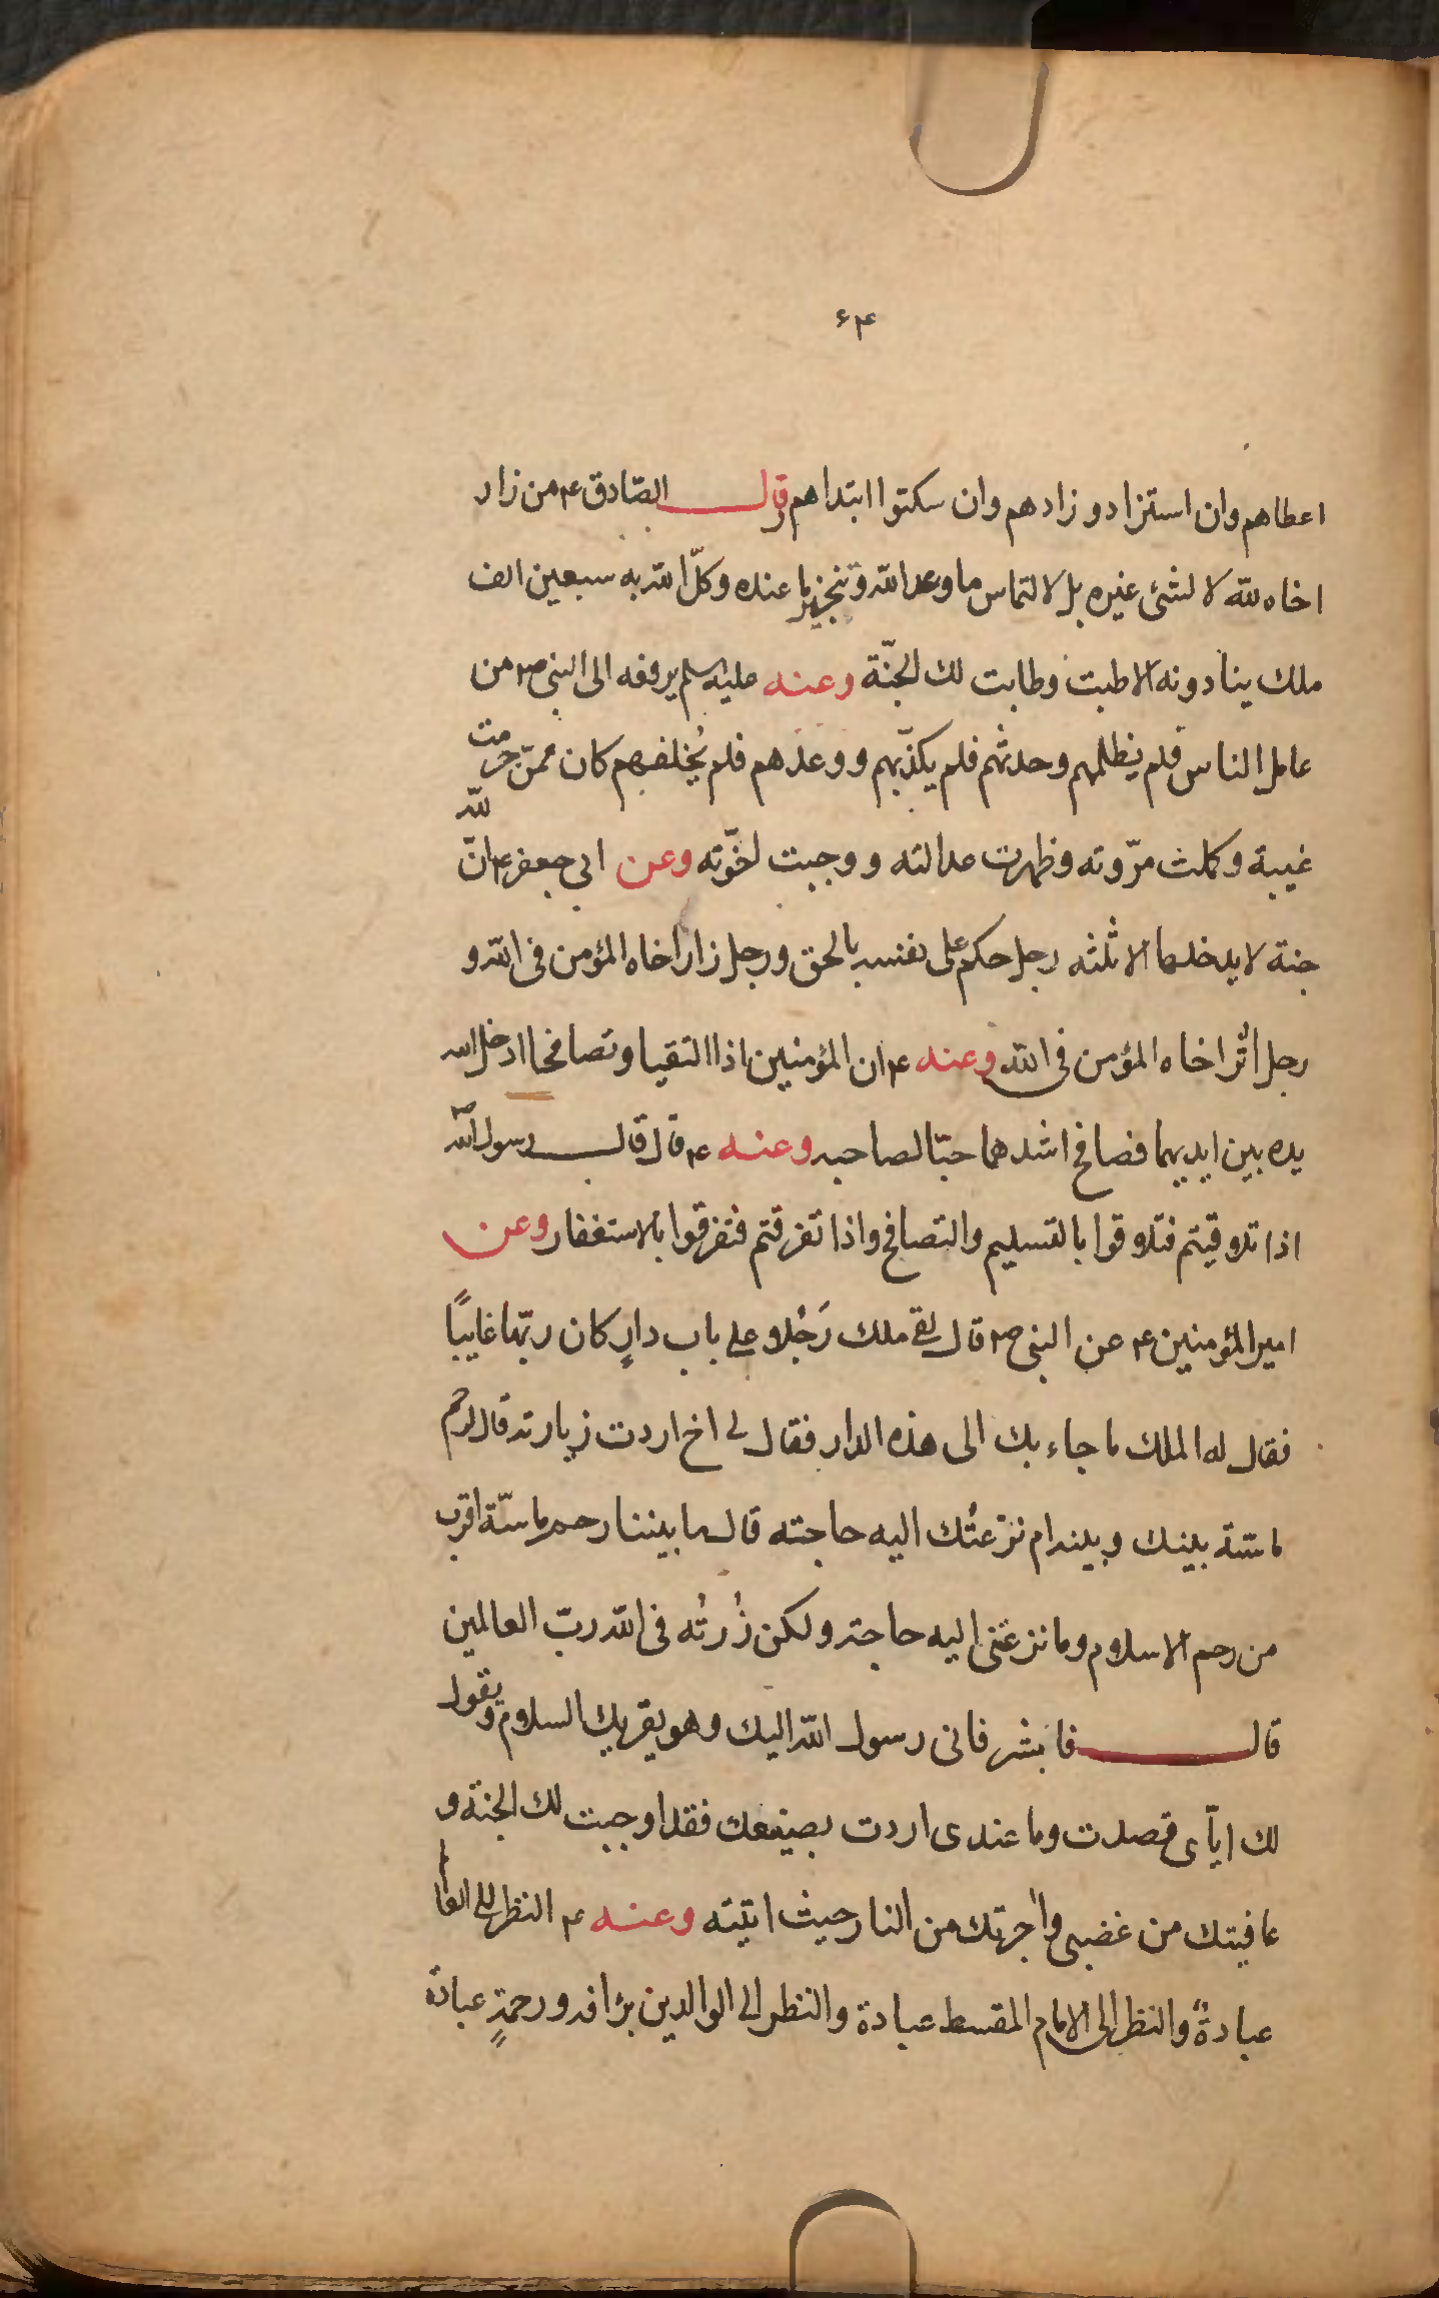 ۶۴
اعطاهم وان استزادو زادهم وان سكتوا ابتداهم وقال الصّادق ع من زار
اخاه للّه لا لشئ غيره بل لالتماس ما وعد اللّه وتنجز ما عنده وكلّ اللّه به سبعين الف
ملك ينادونه الا طبت وطابت لك الجنّة وعنه عليه السلم يرفعه الى النبى ص من
عامل الناس فلم يظلمهم وحدثهم فلم يكذّبهم ووعدهم فلم يُخلفهم كان ممّن حرمت
غيبة وكملت مرّوته وظهرت عدالته ووجبت اخوّته وعن ابى جعفر ع انّ للّه
جنة لا يدخلها الا ثلثه رجل حكم على نفسه بالحق ورجل زار اخاه المؤمن فى اللّه و
رجل اثر اخاه المؤمن فى اللّه وعنه ع ان المؤمنين اذا التقيا وتصافحا ادخل اللّه
يده بين ايديهما فصافح اشدهما حبّا لصاحبه وعنه ع قال قال رسول اللّه ص
اذا تلاقيتم فتلاقوا بالتسليم والتصافح واذا تفرقتم فتفرقوا بالاستغفار وعن
امير المؤمنين ع عن النبى ص قال لقى ملك رَجُلا على باب دارٍ كان ربّها غايبًا
فقال له الملك ما جاء بك الى هذه الدار فقال لى اخ اردت زيارته قال لرحم
ماسّة بينك وبينه ام نزعتُك اليه حاجته قال ما بيننا رحم ماسّة اقرب
من رحم الاسلام وما نزعتنى اليه حاجة ولكن زُرتُه فى اللّه ربّ العالمين
قال فابشر فانى رسول اللّه اليك وهو يقريك السلام ويقول
لك ايّاى قصدت وما عندى اردت بصنيعك فقد اوجبت لك الجنة و
عافيتك من غضبى واجرتك من النار حيث اتيته وعنه ع النظر الى العالم
عبادةً والنظر الى الامام المقسط عبادة والنظر الى الوالدين برافة ورحمةٍ عبادة